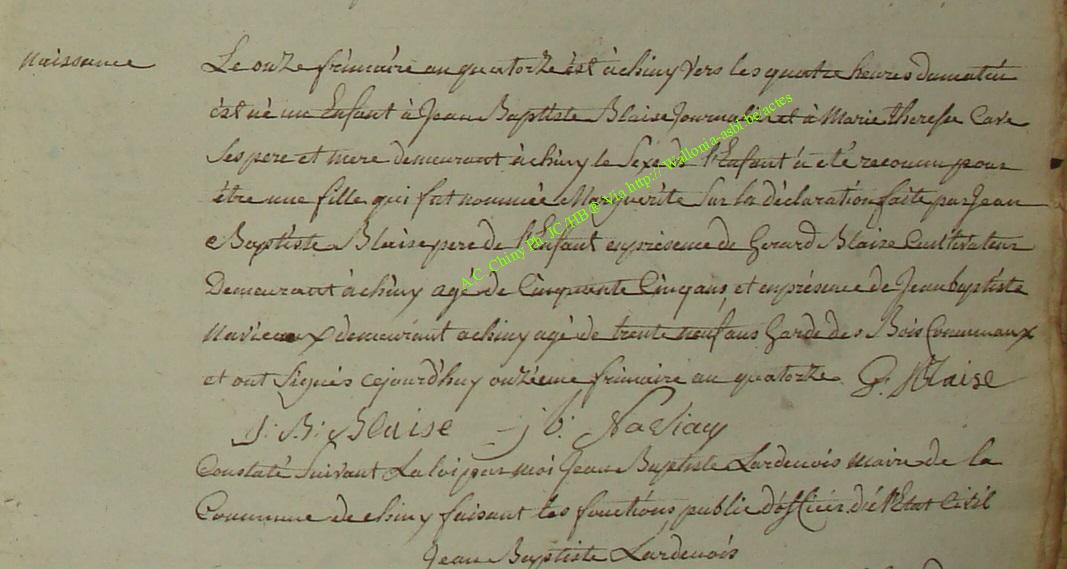 Naissance
Le onze frimaire an quatorze est à chiny vers les quatre heures du matin
est né un Enfant à Jean Baptiste Blaise Journalier et à Marie therese Cave
Ses pere et mere demeurant à chiny le Sexe de l'Enfant à eté reconnu pour
être une fille qui fut nommée Marguérite Sur la déclaration faite par Jean
Baptiste Blaise pere de l'Enfant en présence de Gerard Blaise Cultivateur
Demeurant à chiny agé de Cinquante Cinq ans, et en présence de Jean baptiste
Naviaux demeurant a chiny agé de trente neuf ans Garde des Bois Communaux
et ont Signés cejourd'huy onzieme frimaire an quatorze. G. Blaise
J: B: Blaise j b: Naviaux
Constaté Suivant La loi par moi Jean Baptiste Lardenois maire de la
Commune de chiny faisant les fonctions public d'officier de l'Etat Civil
Jean Baptiste Lardenois
A.C. Chiny Ph. JC /HB @ Via http:// Wallonia-asbl-be/actes